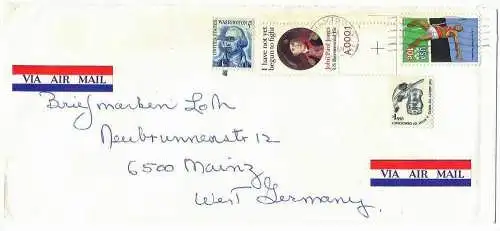 UNITED STATES
WASHINGTON 5¢
I have not yet
begun to fight
John Paul Jones
US Bicentennial 15c
A0001
VIA AIR MAIL
Briefmarken Loth
Neubrunnenstr 12
6500 Mainz
West Germany
VIA AIR MAIL